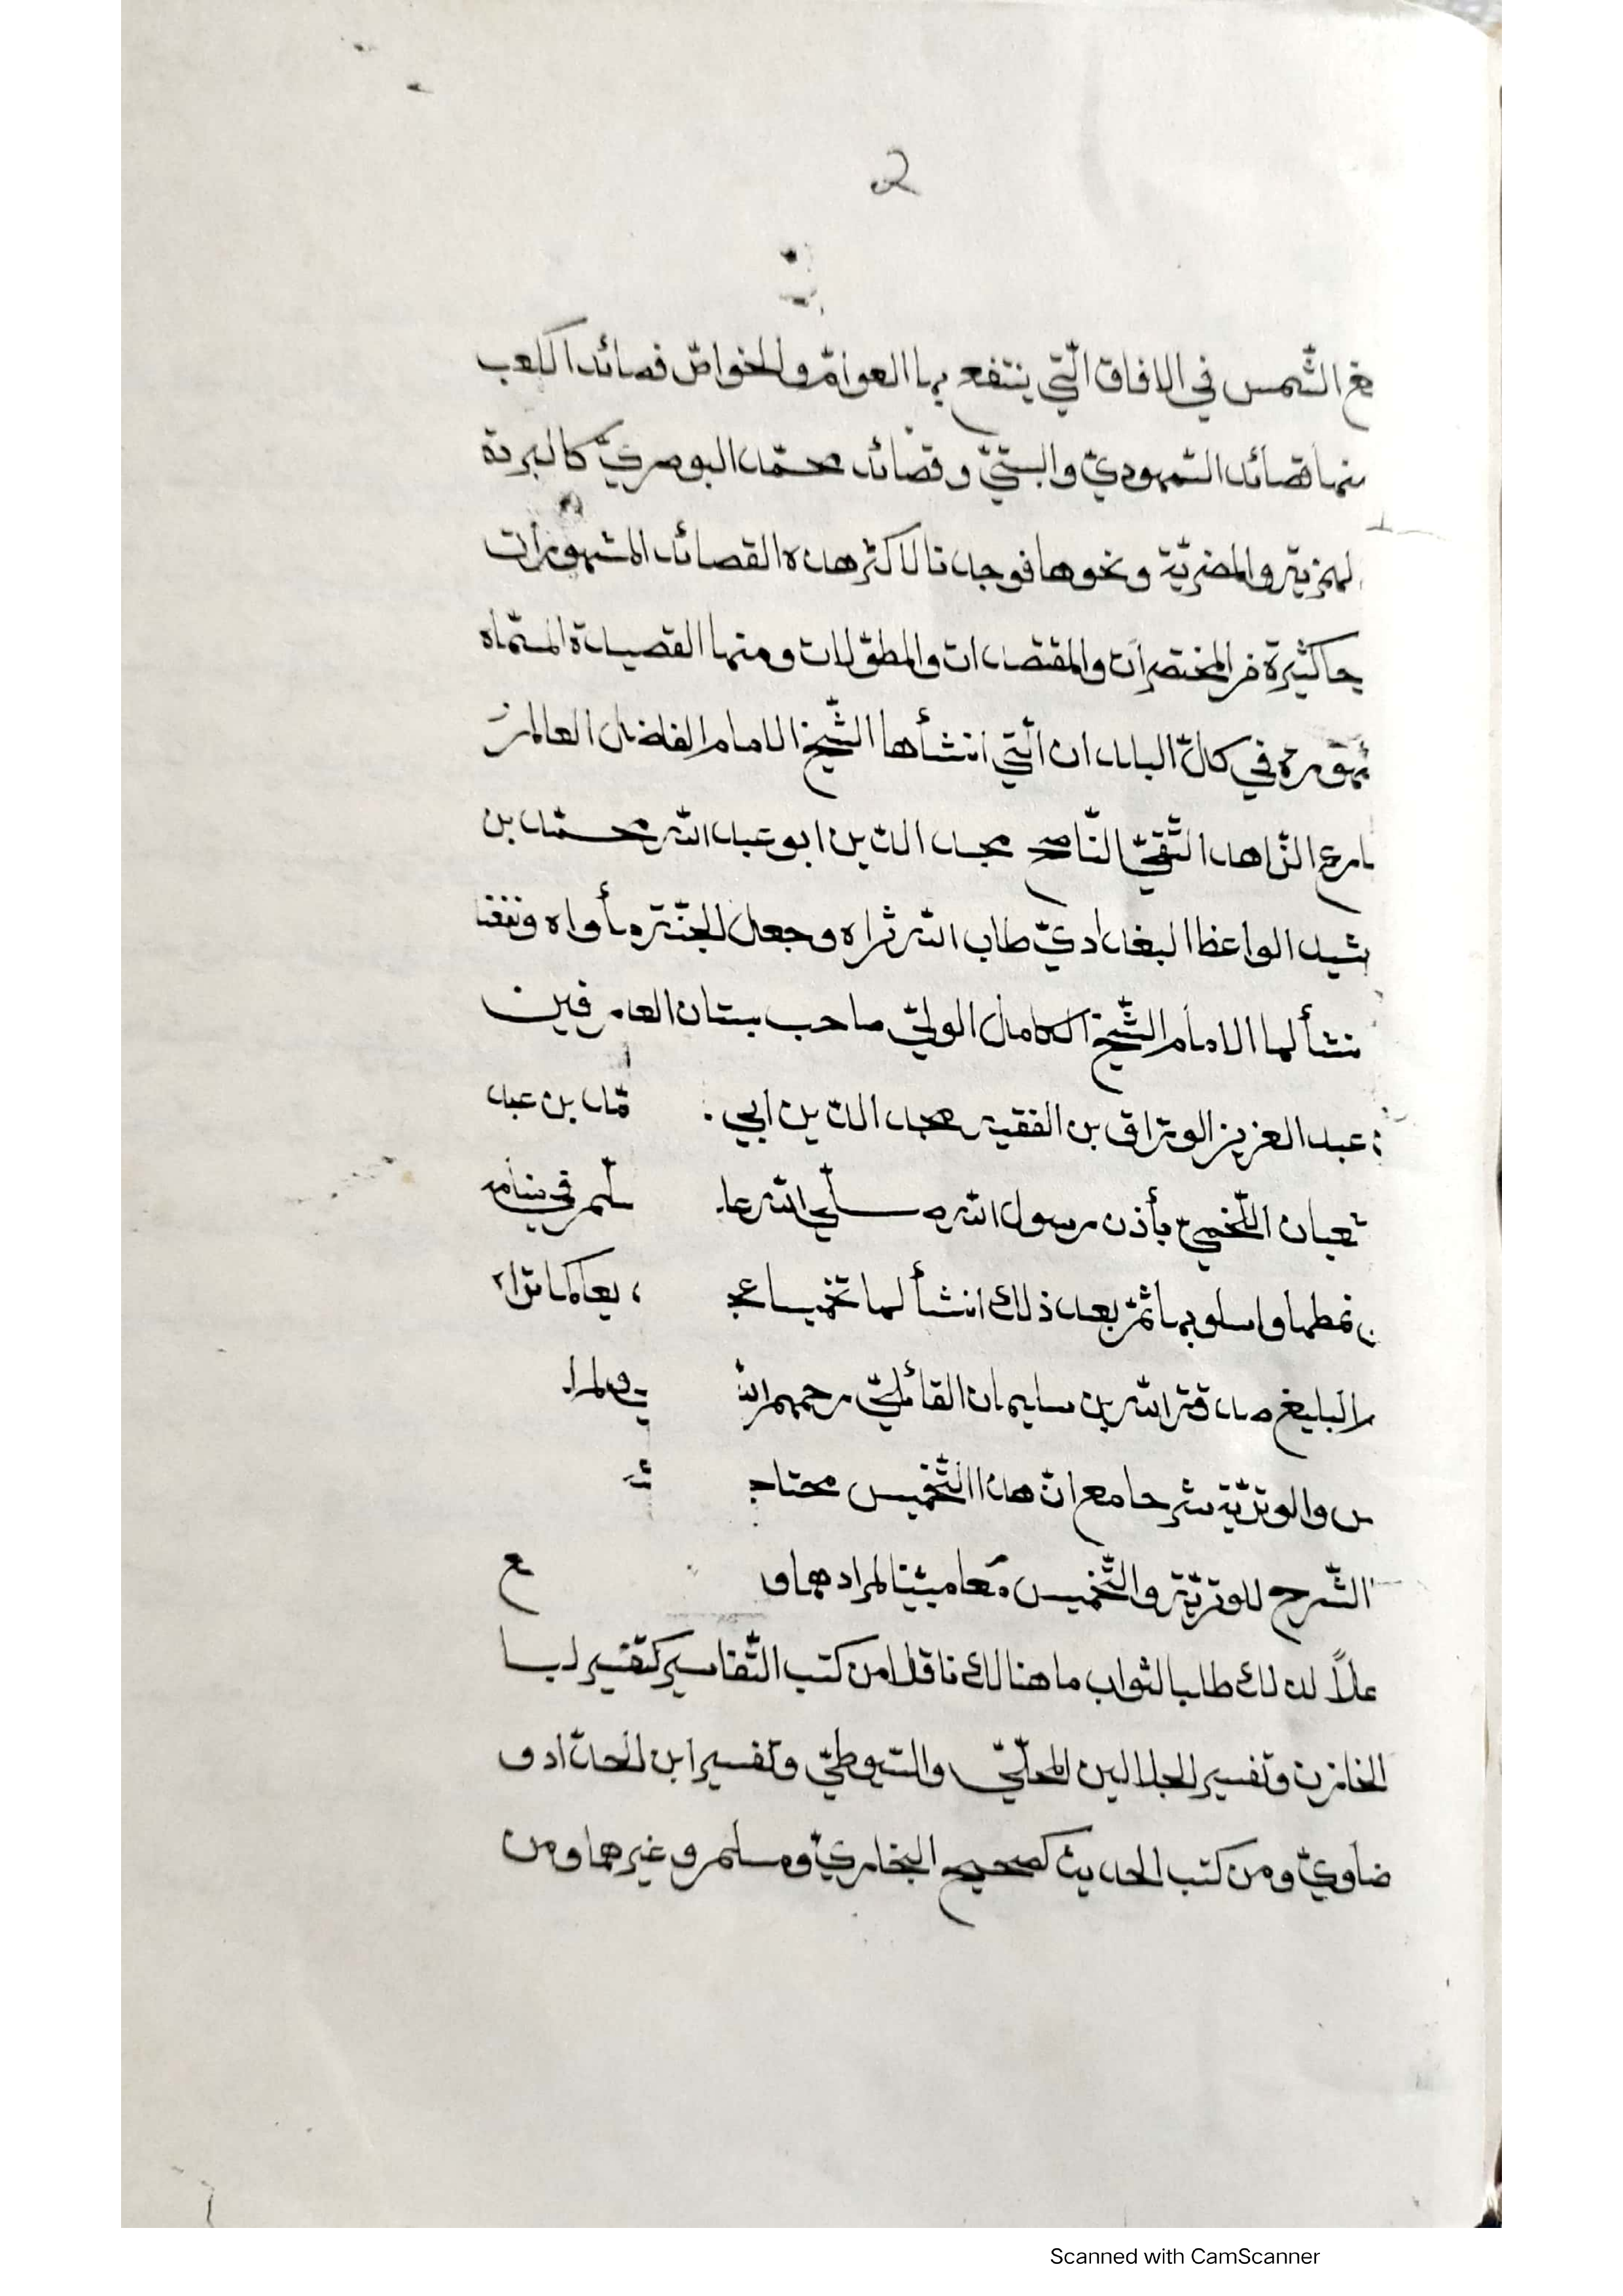 2
غ الشّمس في الافاق الّتي ينتفع بها العوامّ والخواصّ قصائد الكعب
منها قصائد السّمهوديّ والبستيّ وقصائد محمّد البوصريّ كالبردة
لهمزيّة والمضريّة ونحوها فوجدنا لاكثر هذه القصائد المشهورات
حا كثيرة من المختصرات والمقتصدات والمطوّلات ومنها القصيدة المسمّاه
في كلّ البلدان الّتي انشأها الشّيخ الامام الفاضل العالم
بارع الزّاهد التّقيّ النّاصح مجد الدّين ابو عبد اللّه محمّد بن
شيد الواعظ البغداديّ طاب اللّه ثراه وجعل الجنّة مأواه ونفعنا
نشألها الامام الشّيخ الكامل الوليّ صاحب بستان العارفين
عبد العزيز الورّاق بن الفقيه مجد الدّين ابي مّد بن عبد
اللّخميّ بأذن رسول اللّه صلّي اللّه سلّم في منامه
نمطها واسلوبها ثمّ بعد ذلك انشألها تخميسا كما تراه
البليغ صدقة اللّه بن سليمان القائليّ رحمهم اللّه
س والوتريّة شرحا مع انّ هذا التّخميس
الشّرح للوتريّة والتّخميس معا مبيّنا لمرادهما و
علاً لذلك طالبا لثواب ما هنالك ناقلا من كتب التّفاسير كتفسير لبا
الخازن وتفسير الجلالين المحلّيّ والسّيوطيّ وتفسير ابن الحدّاد و
ضاويّ ومن كتب الحديث كصحيح البخاريّ ومسلم وغيرهما ومن
Scanned with CamScanner